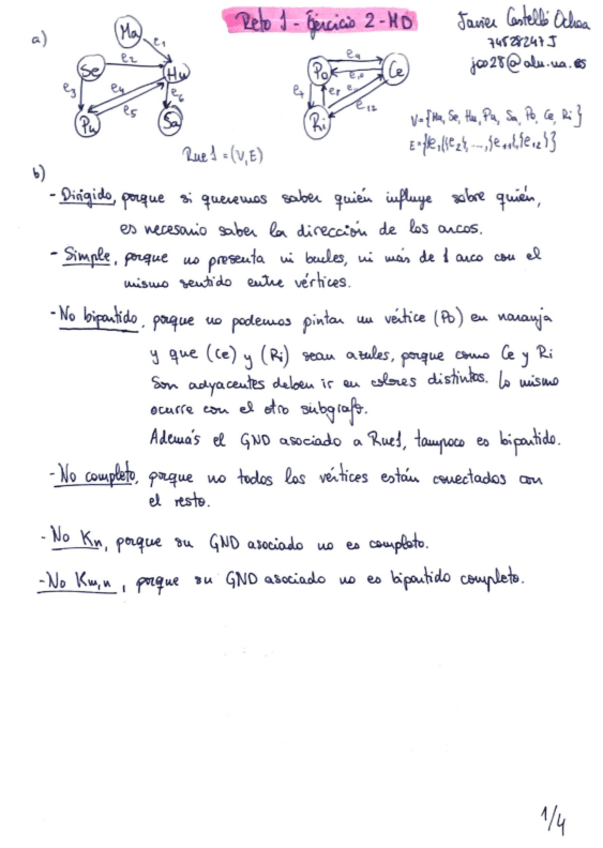 Reto 1 - Ejercicio 2 - MD
Javier Castelló Ochoa
74528247J
jco28@alu.ua.es
a)
Ma
e1
Se
e2
Hu
e3
e4
e5
e6
Pu
Sa
Po
e9
Ce
e7
e8
e12
Ri
V={Ma, Se, Hu, Pu, Sa, Po, Ce, Ri}
E={{e1},{e2},...,{e11},{e12}}
Rue1 = (V,E)
b)
- Dirigido, porque si queremos saber quién influye sobre quién,
es necesario saber la dirección de los arcos.
- Simple, porque no presenta ni bucles, ni más de 1 arco con el
mismo sentido entre vértices.
- No bipartido, porque no podemos pintar un vértice (Po) en naranja
y que (Ce) y (Ri) sean azules, porque como Ce y Ri
son adyacentes deben ir en colores distintos. Lo mismo
ocurre con el otro subgrafo.
Además el GND asociado a Rue1, tampoco es bipartido.
- No completo, porque no todos los vértices están conectados con
el resto.
- No Kn, porque su GND asociado no es completo.
- No Km,n, porque su GND asociado no es bipartido completo.
1/4